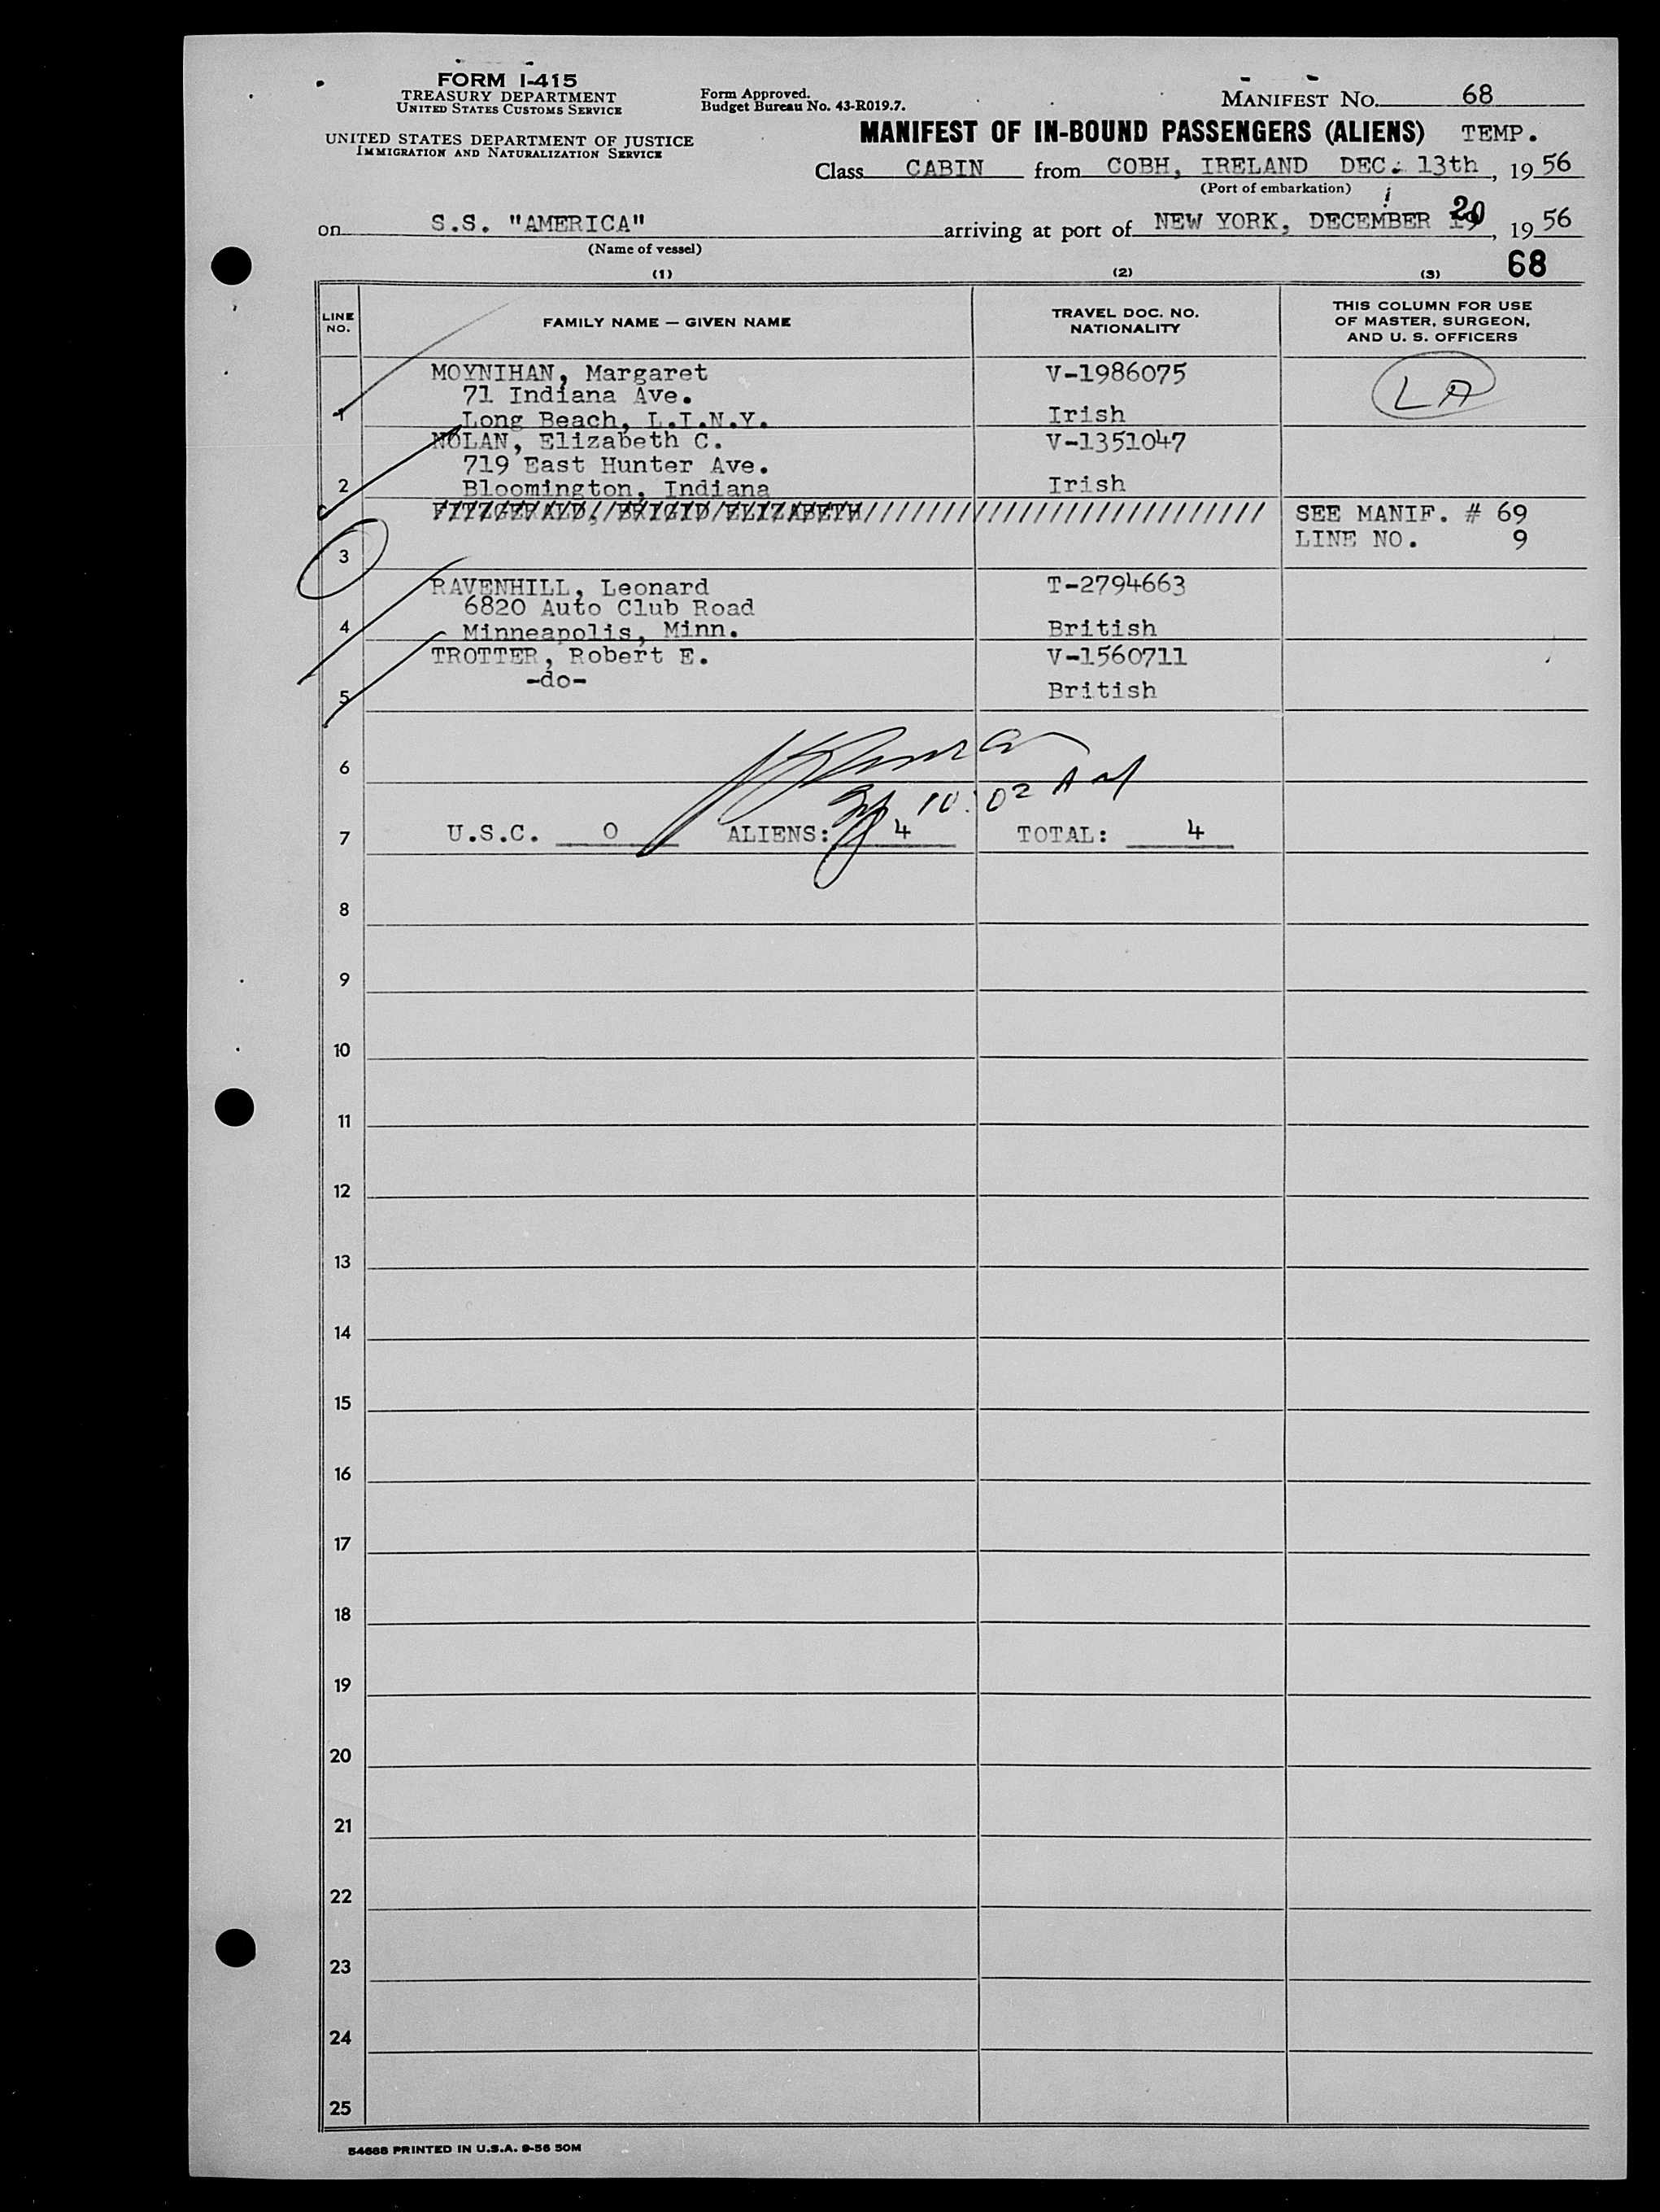 FORM I-415
TREASURY DEPARTMENT
UNITED STATES CUSTOMS SERVICE
UNITED STATES DEPARTMENT OF JUSTICE
IMMIGRATION AND NATURALIZATION SERVICE
Form Approved.
Budget Bureau No. 43-R019.7.
MANIFEST NO. 68
MANIFEST OF IN-BOUND PASSENGERS (ALIENS) TEMP.
Class CABIN from COBH, IRELAND DEC. 13th, 19 56
(Port of embarkation)
on S.S. "AMERICA" arriving at port of NEW YORK, DECEMBER 20, 19 56
(Name of vessel)
68
(1) (2) (3)
LINE NO. FAMILY NAME — GIVEN NAME TRAVEL DOC. NO. NATIONALITY THIS COLUMN FOR USE OF MASTER, SURGEON, AND U. S. OFFICERS
MOYNIHAN, Margaret V-1986075 LA
71 Indiana Ave.
1 Long Beach, L.I.N.Y. Irish
NOLAN, Elizabeth C. V-1351047
719 East Hunter Ave.
2 Bloomington, Indiana Irish
FITZGERALD, BRIGID ELIZABETH SEE MANIF. # 69
LINE NO. 9
3
RAVENHILL, Leonard T-2794663
6820 Auto Club Road
4 Minneapolis, Minn. British
TROTTER, Robert E. V-1560711
-do-
5 British
6
10:02 AM
7 U.S.C. 0 ALIENS: 4 TOTAL: 4
8
9
10
11
12
13
14
15
16
17
18
19
20
21
22
23
24
25
54688 PRINTED IN U.S.A. 9-56 50M